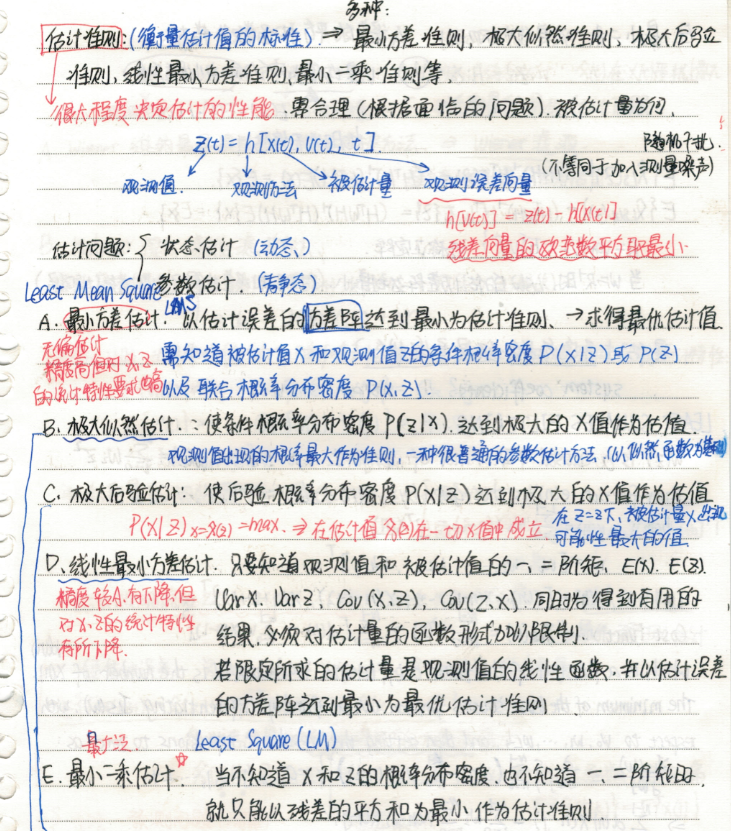 多种:
估计准则:(衡量估计值的标准) ⇒ 最小方差准则, 极大似然准则, 极大后验
准则, 线性最小方差准则, 最小二乘准则等,
很大程度决定估计的性能, 要合理 (根据面临的问题). 被估计量为何,
z(t) = h[x(t), v(t), t].
随机干扰.
(不等同于加入测量噪声)
观测值. 观测方法 被估计量 观测误差向量
h[v(t)] = z(t) - h[x(t)]
残差向量的欧氏范数平方取最小.
估计问题: { 状态估计 (动态、)
参数估计. (静态)
Least Mean Square
LMS
A. 最小方差估计: 以估计误差的方差阵达到最小为估计准则、→求得最优估计值.
无偏估计
精度高但对 x, z
的统计特性要求高
需知道被估计值X和观测值Z的条件概率密度 P(X|Z) 或 P(Z)
以及联合概率分布密度 P(X, Z).
B. 极大似然估计: 使条件概率分布密度 P(Z|X) 达到极大的X值作为估值.
观测值出现的概率最大作为准则, 一种很普通的参数估计方法, (以似然函数为准则
C. 极大后验估计: 使后验概率分布密度 P(X|Z) 达到极大的X值作为估值
P(X|Z) x=x̂(z) = max. ⇒ 在估计值 x̂(z) 在一切X值中成立.
在Z=z下, 被估计量X出现
可能性最大的值.
D. 线性最小方差估计. 只要知道观测值和被估计值的一、二阶矩, E(X). E(Z).
精度较A.有下降, 但
对X, Z的统计特性
有所下降.
Var X. Var Z, Cov(X, Z), Cov(Z, X). 同时为得到有用的
结果, 必须对估计量的函数形式加以限制.
若限定所求的估计量是观测值的线性函数, 并以估计误差
的方差阵达到最小为最优估计准则.
Least Square (LM)
E. 最小二乘估计. ☆ 当不知道X和Z的概率分布密度, 也不知道一、二阶矩时,
就只能以残差的平方和为最小作为估计准则